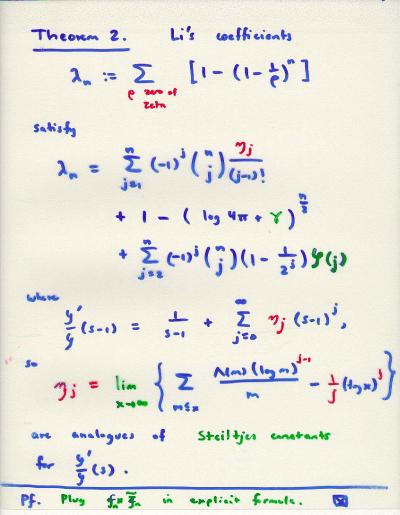 Theorem 2. Li's coefficients
λ_n := Σ_ρ [1 - (1 - 1/ρ)^n]
ρ zero of
zeta
satisfy
λ_n = Σ_{j=1}^{n} (-1)^j (n j) η_j/(j-1)!
+ 1 - (log 4π + γ) n/2
+ Σ_{j=2}^{n} (-1)^j (n j) (1 - 1/2^j) ζ(j)
where
ζ'/ζ (s-1) = 1/(s-1) + Σ_{j=0}^{∞} η_j (s-1)^j,
so
η_j = lim_{x→∞} { Σ_{m≤x} Λ(m)(log m)^{j-1}/m - 1/j (log x)^j }
are analogues of Steiltjes constants
for ζ'/ζ (s).
Pf. Plug f_n * f̃_n in explicit formula. ⊠